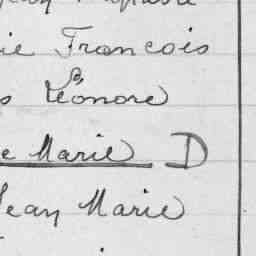 ie François
s Léonore
e Marie D
Jean Marie